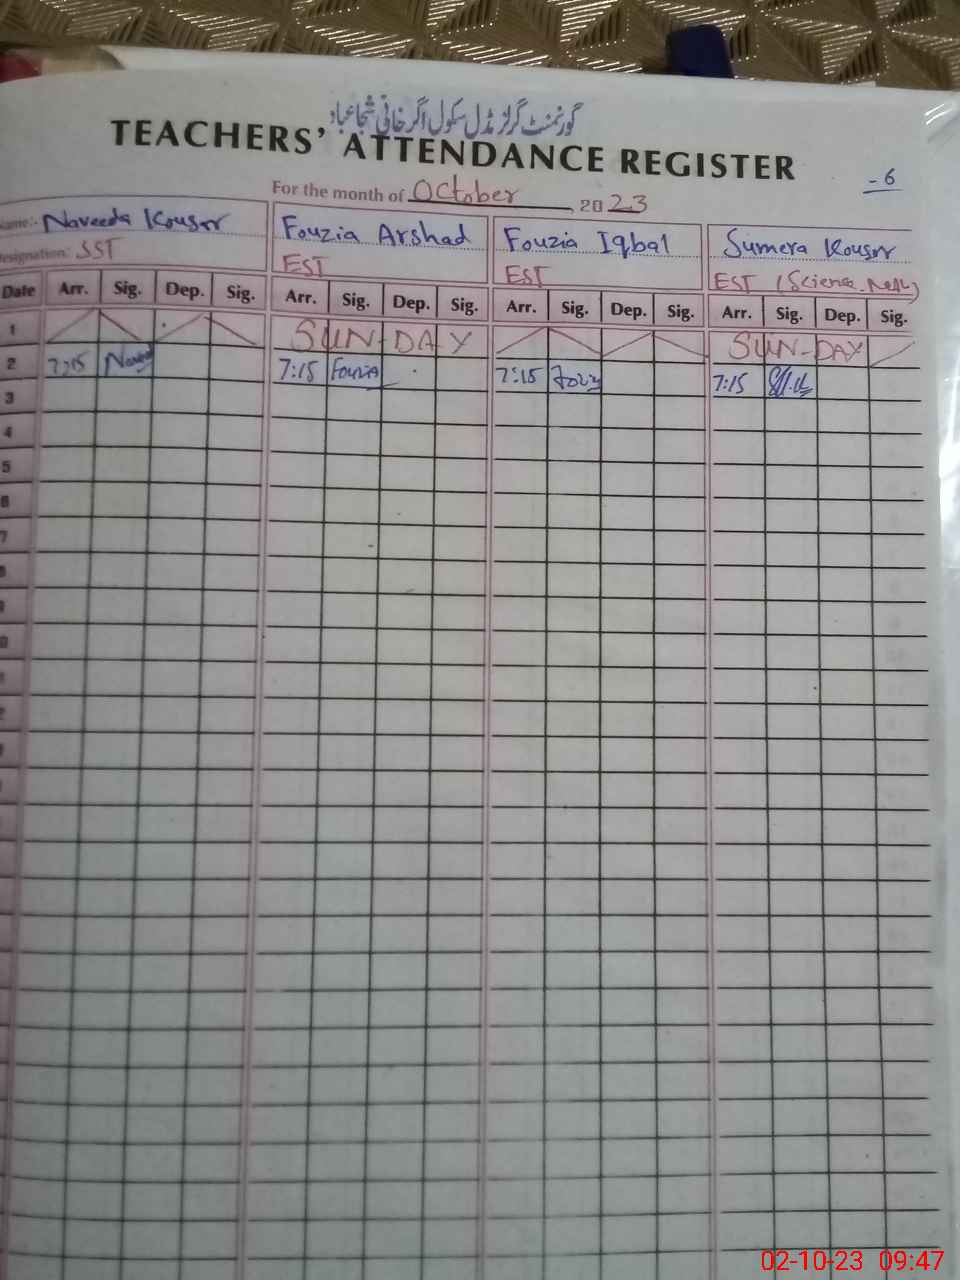 گورنمنٹ گرلز مڈل سکول اگر خانی شجاعباد
TEACHERS' ATTENDANCE REGISTER
-6
For the month of October, 2023
Name:- Naveeda Kousar Fouzia Arshad Fouzia Iqbal Sumera Kousar
Designation: SST EST EST EST (Science
Date Arr. Sig. Dep. Sig. Arr. Sig. Dep. Sig. Arr. Sig. Dep. Sig. Arr. Sig. Dep. Sig.
1 SUN-DAY SUN-DAY
2 7:15 7:15 Fouzia 7:15 7:15
3
4
5
6
7
8
9
02-10-23 09:47